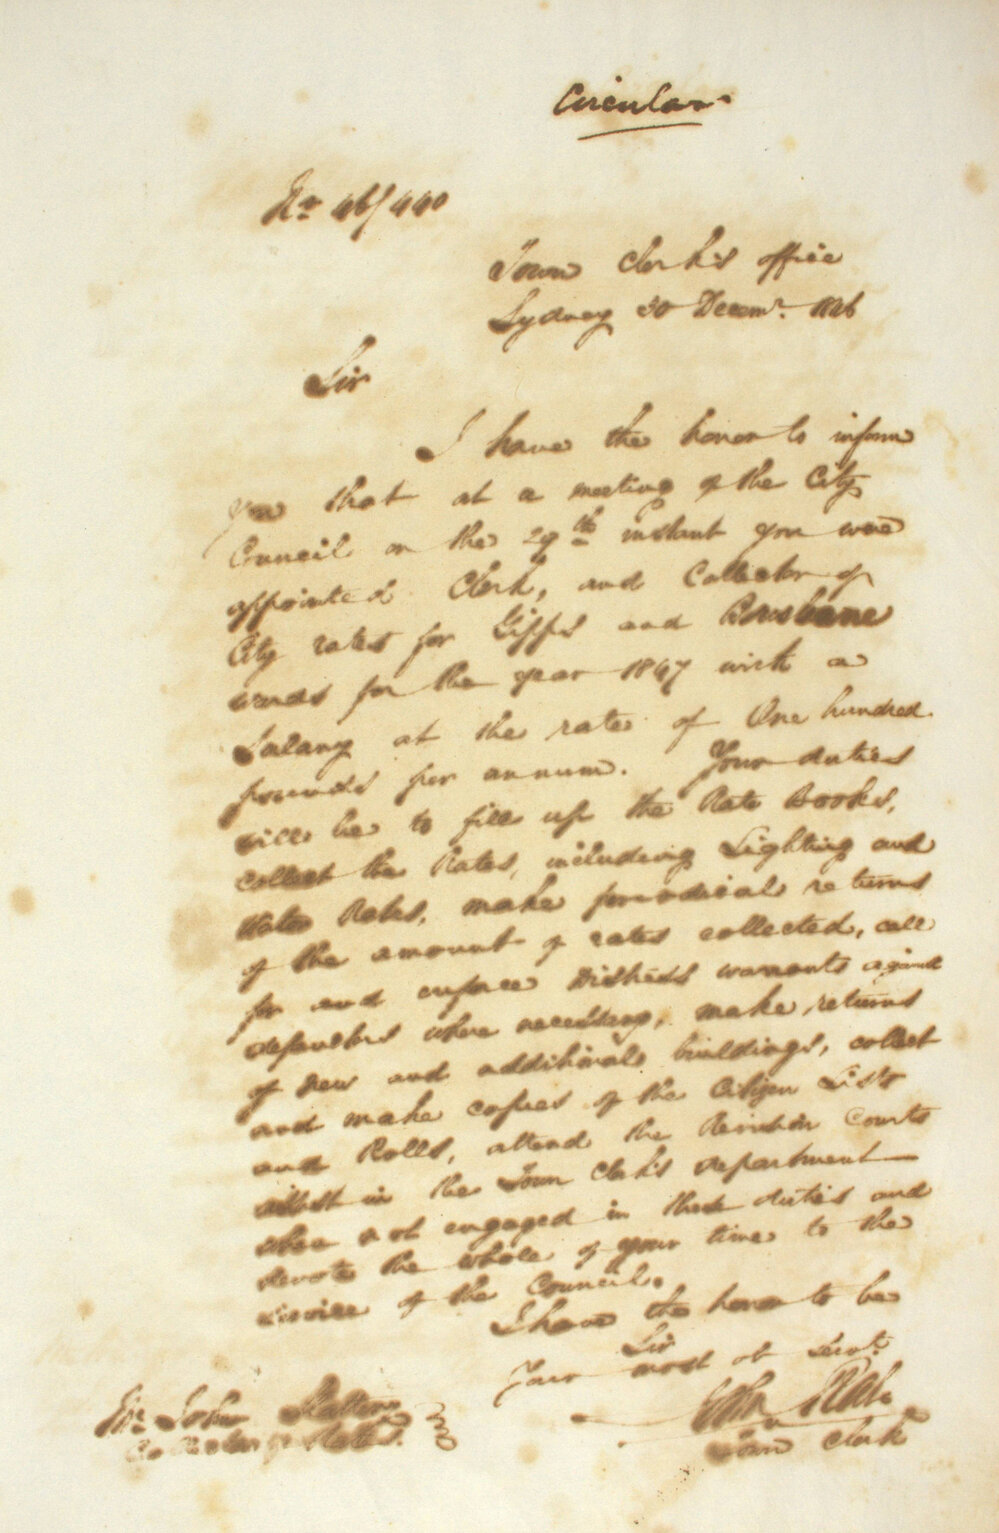 Circular
No 46/440
Town Clerk's office
Sydney 30 Decemr. 1846
Sir
I have the honor to inform
you that at a meeting of the City
Council on the 29th instant you were
appointed Clerk, and Collector of
City rates for Gipps and Brisbane
wards for the year 1847 with a
Salary at the rate of One hundred
pounds per annum. Your duties
will be to fill up the Rate Books,
collect the Rates, including Lighting and
Water Rates, make periodical returns
of the amount of rates collected, call
for and enforce distress warrants against
defaulters where necessary, make returns
of new and additional buildings, collect
and make copies of the Citizen Lists
and Rolls, attend the Revision Courts
assist in the Town Clerk's department
when not engaged in these duties and
devote the whole of your time to the
service of the Council.
I have the honor to be
Sir
Your most ob Servt.
John
Town Clerk
Mr John
Collector of Rates.